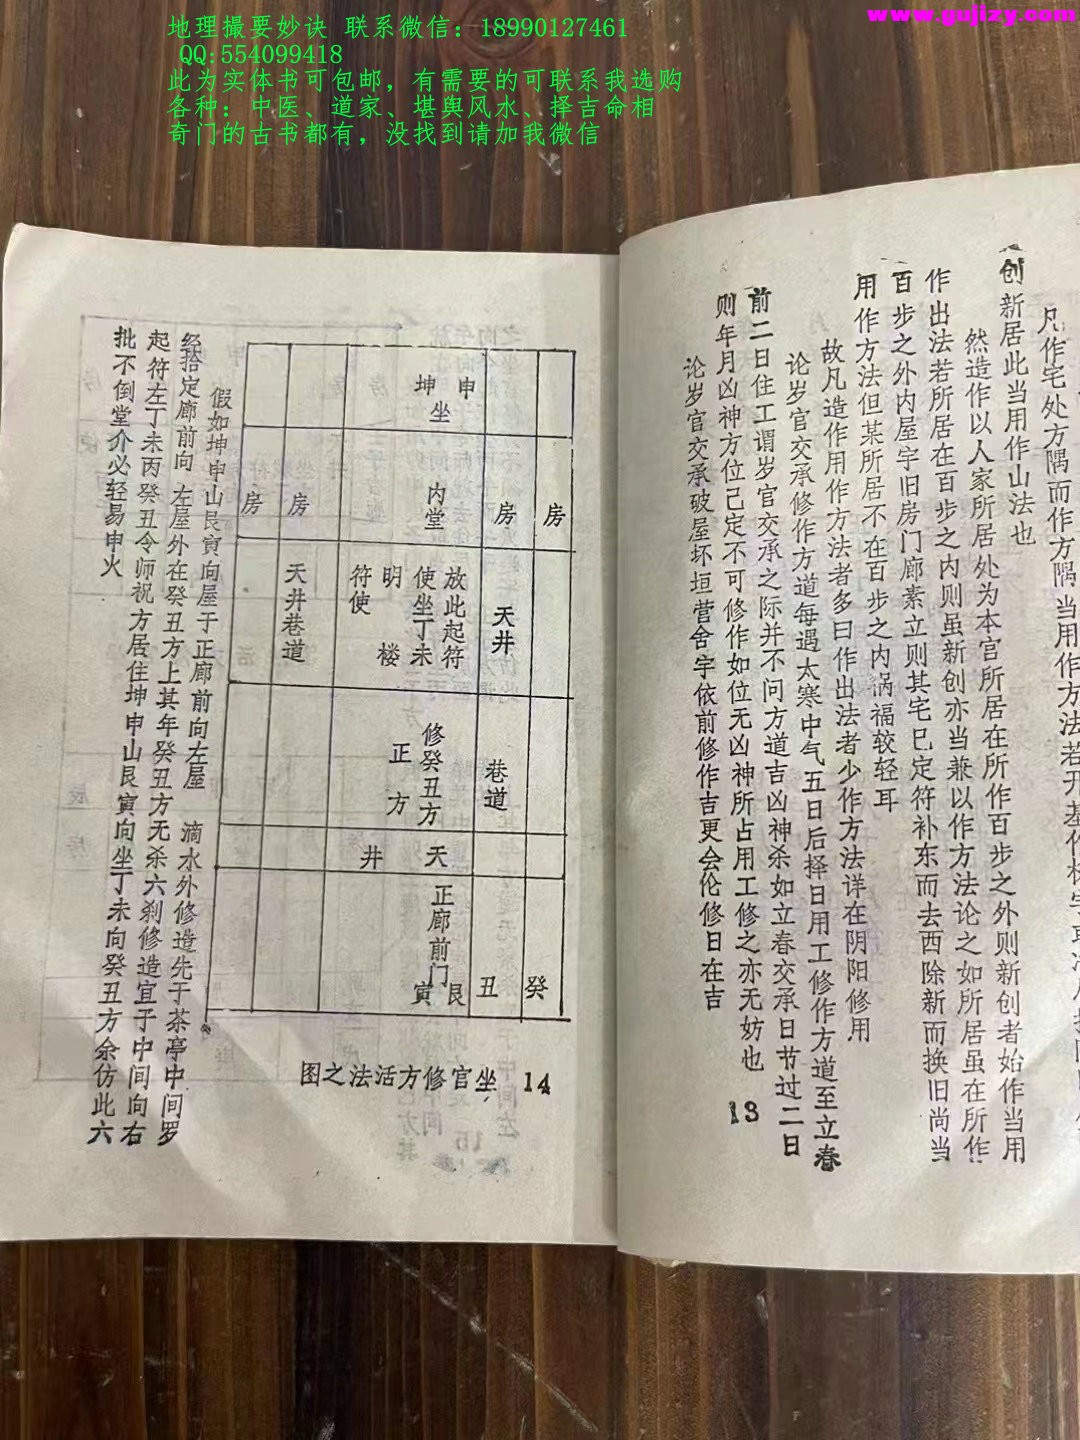 www.gujizy.com
地理撮要妙诀 联系微信：18990127461
QQ:554099418
此为实体书可包邮，有需要的可联系我选购
各种：中医、道家、堪舆风水、择吉命相
奇门的古书都有，没找到请加我微信
凡作宅处方隅而作方隅当用作方法若开基作
创新居此当用作山法也
然造作以人家所居处为本宫所居在所作百步之外则新创者始作当用
作出法若所居在百步之内则虽新创亦当兼以作方法论之如所居虽在所作
百步之外内屋宇旧房门廊素立则其宅已定符补东而去西除新而换旧尚当
用作方法但某所居不在百步之内祸福较轻耳
故凡造作用作方法者多曰作出法者少作方法详在阴阳修用
论岁官交承修作方道每遇太寒中气五日后择日用工修作方道至立春
前二日住工谓岁官交承之际并不问方道吉凶神杀如立春交承日节过二日
则年月凶神方位已定不可修作如位无凶神所占用工修之亦无妨也
论岁官交承破屋坏垣营舍宇依前修作吉更会伦修日在吉
13
申
坤
坐
房
房
内堂
房
房
天井
放此起符
使坐丁未
明
楼
符使
天井巷道
巷道
修癸丑方
正
方
天
井
正廊前门
癸
丑
艮
寅
图之法活方修官坐 14
假如坤申山艮寅向屋于正廊前向左屋 滴水外修造先于茶亭中间罗
经搭定廊前向 左屋外在癸丑方上其年癸丑方无杀六刹修造宜于中间向右
起符左丁未丙癸丑令师祝方居住坤申山艮寅向坐丁未向癸丑方余仿此六
批不倒堂介必轻易申火